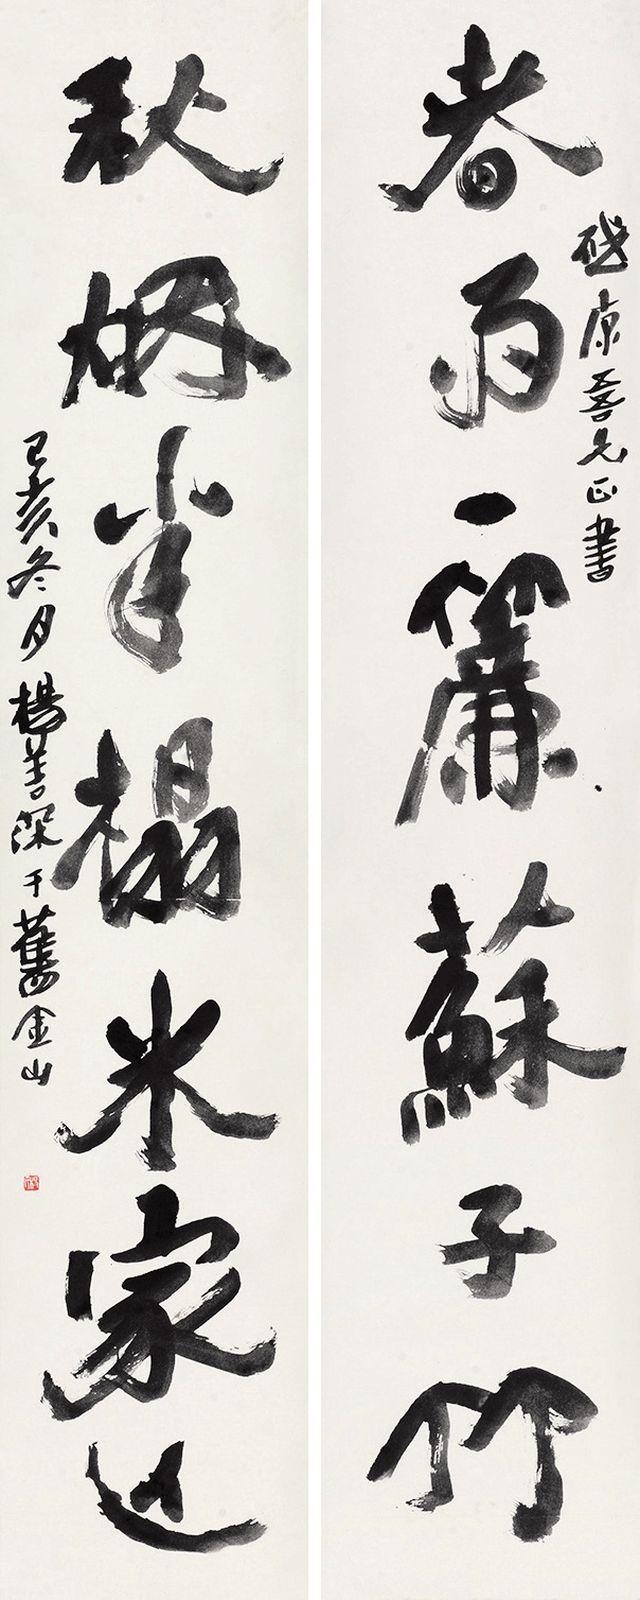 原吾兄正書
春雨一簾蘇子竹
秋烟半榻米家山
己亥冬月楊善深于舊金山